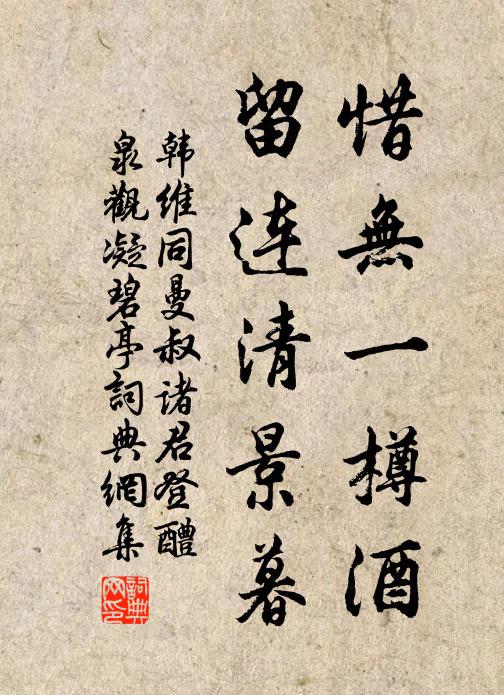 惜無一樽酒
留連清景暮
韩维同曼叔诸君登醴
泉觀凝碧亭詞典網集
詞典網印